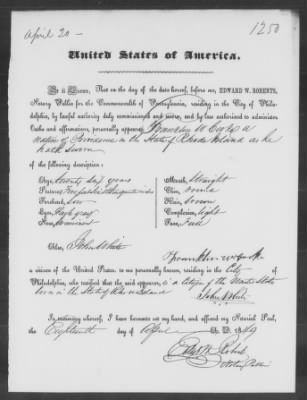 April 20 — 1250
United States of America.
Be it Known, That on the day of the date hereof, before me, EDWARD W. ROBERTS,
Notary Public for the Commonwealth of Pennsylvania, residing in the City of Phila-
delphia, by lawful authority duly commissioned and sworn, and by law authorized to administer
Oaths and affirmations, personally appeared Franklin W a
native of Providence in the State of Rhode Island as he
hath sworn
of the following description:
Age, twenty years
Mouth, Straight
Stature, Five feet inches
Chin,
Forehead, low
Hair, brown
Eyes, gray
Complexion, light
Nose, prominent
Face, Full
Also, John White
Franklin
a citizen of the United States, to me personally known, residing in the City of
Philadelphia, who testified that the said appearer, is a citizen of the United States
born in the State of Rhode Island
John White
In testimony whereof, I have hereunto set my hand, and affixed my Notarial Seal,
the Eighteenth day of April A. D. 1849
Edw W Roberts
Notary Public